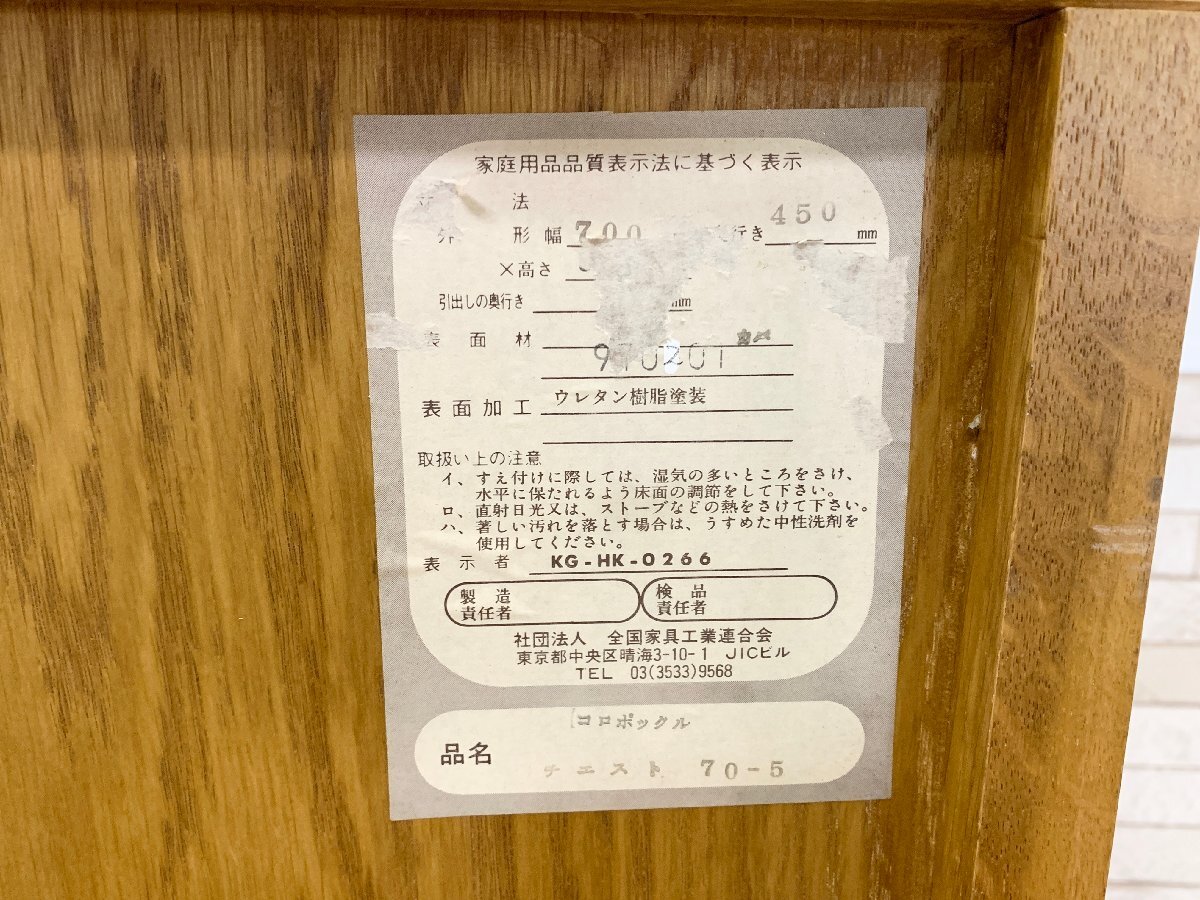 家庭用品品質表示法に基づく表示
法
外 形 幅 700 行き 450 mm
×高さ
引出しの奥行き mm
表 面 材
970201
表面加工 ウレタン樹脂塗装
取扱い上の注意
イ、すえ付けに際しては、湿気の多いところをさけ、
水平に保たれるよう床面の調節をして下さい。
ロ、直射日光又は、ストーブなどの熱をさけて下さい。
ハ、著しい汚れを落とす場合は、うすめた中性洗剤を
使用してください。
表 示 者 KG-HK-0266
製 造 検 品
責任者 責任者
社団法人 全国家具工業連合会
東京都中央区晴海3-10-1 JICビル
TEL 03(3533)9568
コロポックル
品名
チエスト 70-5